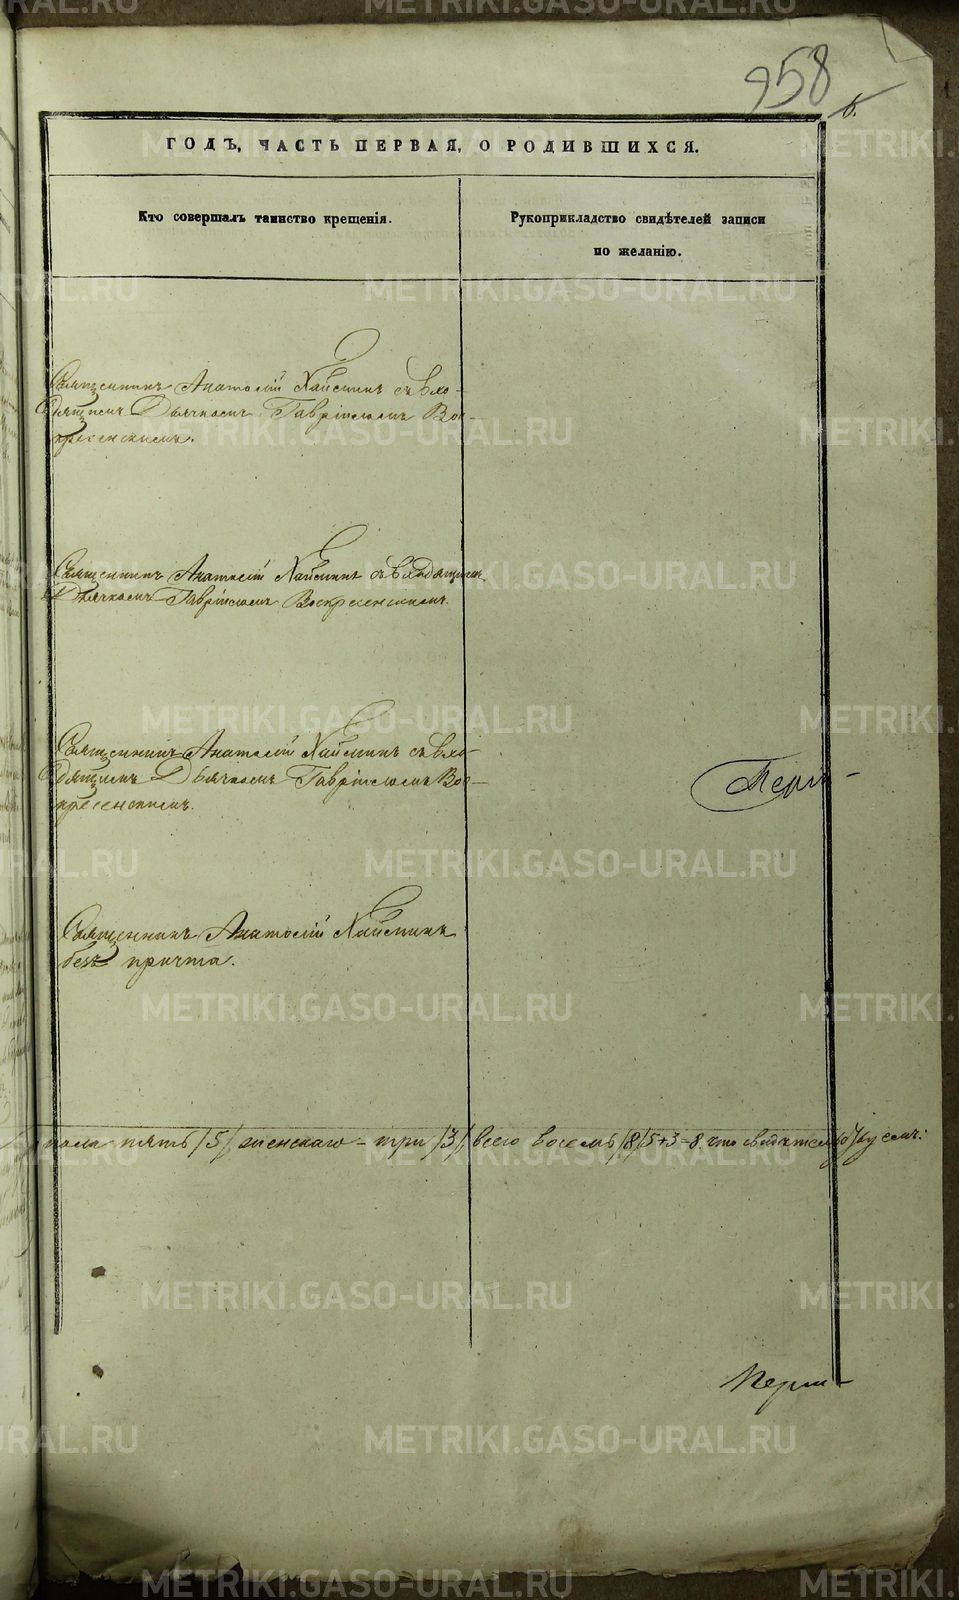 958
6.
ГОДЪ, ЧАСТЬ ПЕРВАЯ, О РОДИВШИХСЯ.
Кто совершалъ таинство крещенія.
Рукоприкладство свидѣтелей записи
по желанію.
Священникъ Анатолій
Дьячкомъ Гавріиломъ Вос-
кресенскимъ.
Священникъ Анатолій
Дьячкомъ Гавріиломъ Воскресенскимъ.
Священникъ Анатолій
Дьячкомъ Гавріиломъ Вос-
кресенскимъ.
Перм-
Священникъ Анатолій
безъ причта.
пола пять /5/ женскаго - три /3/, всего восемь /8/ 5+3=8 что свидѣтельствуемъ:
Перм-
METRIKI.GASO-URAL.RU